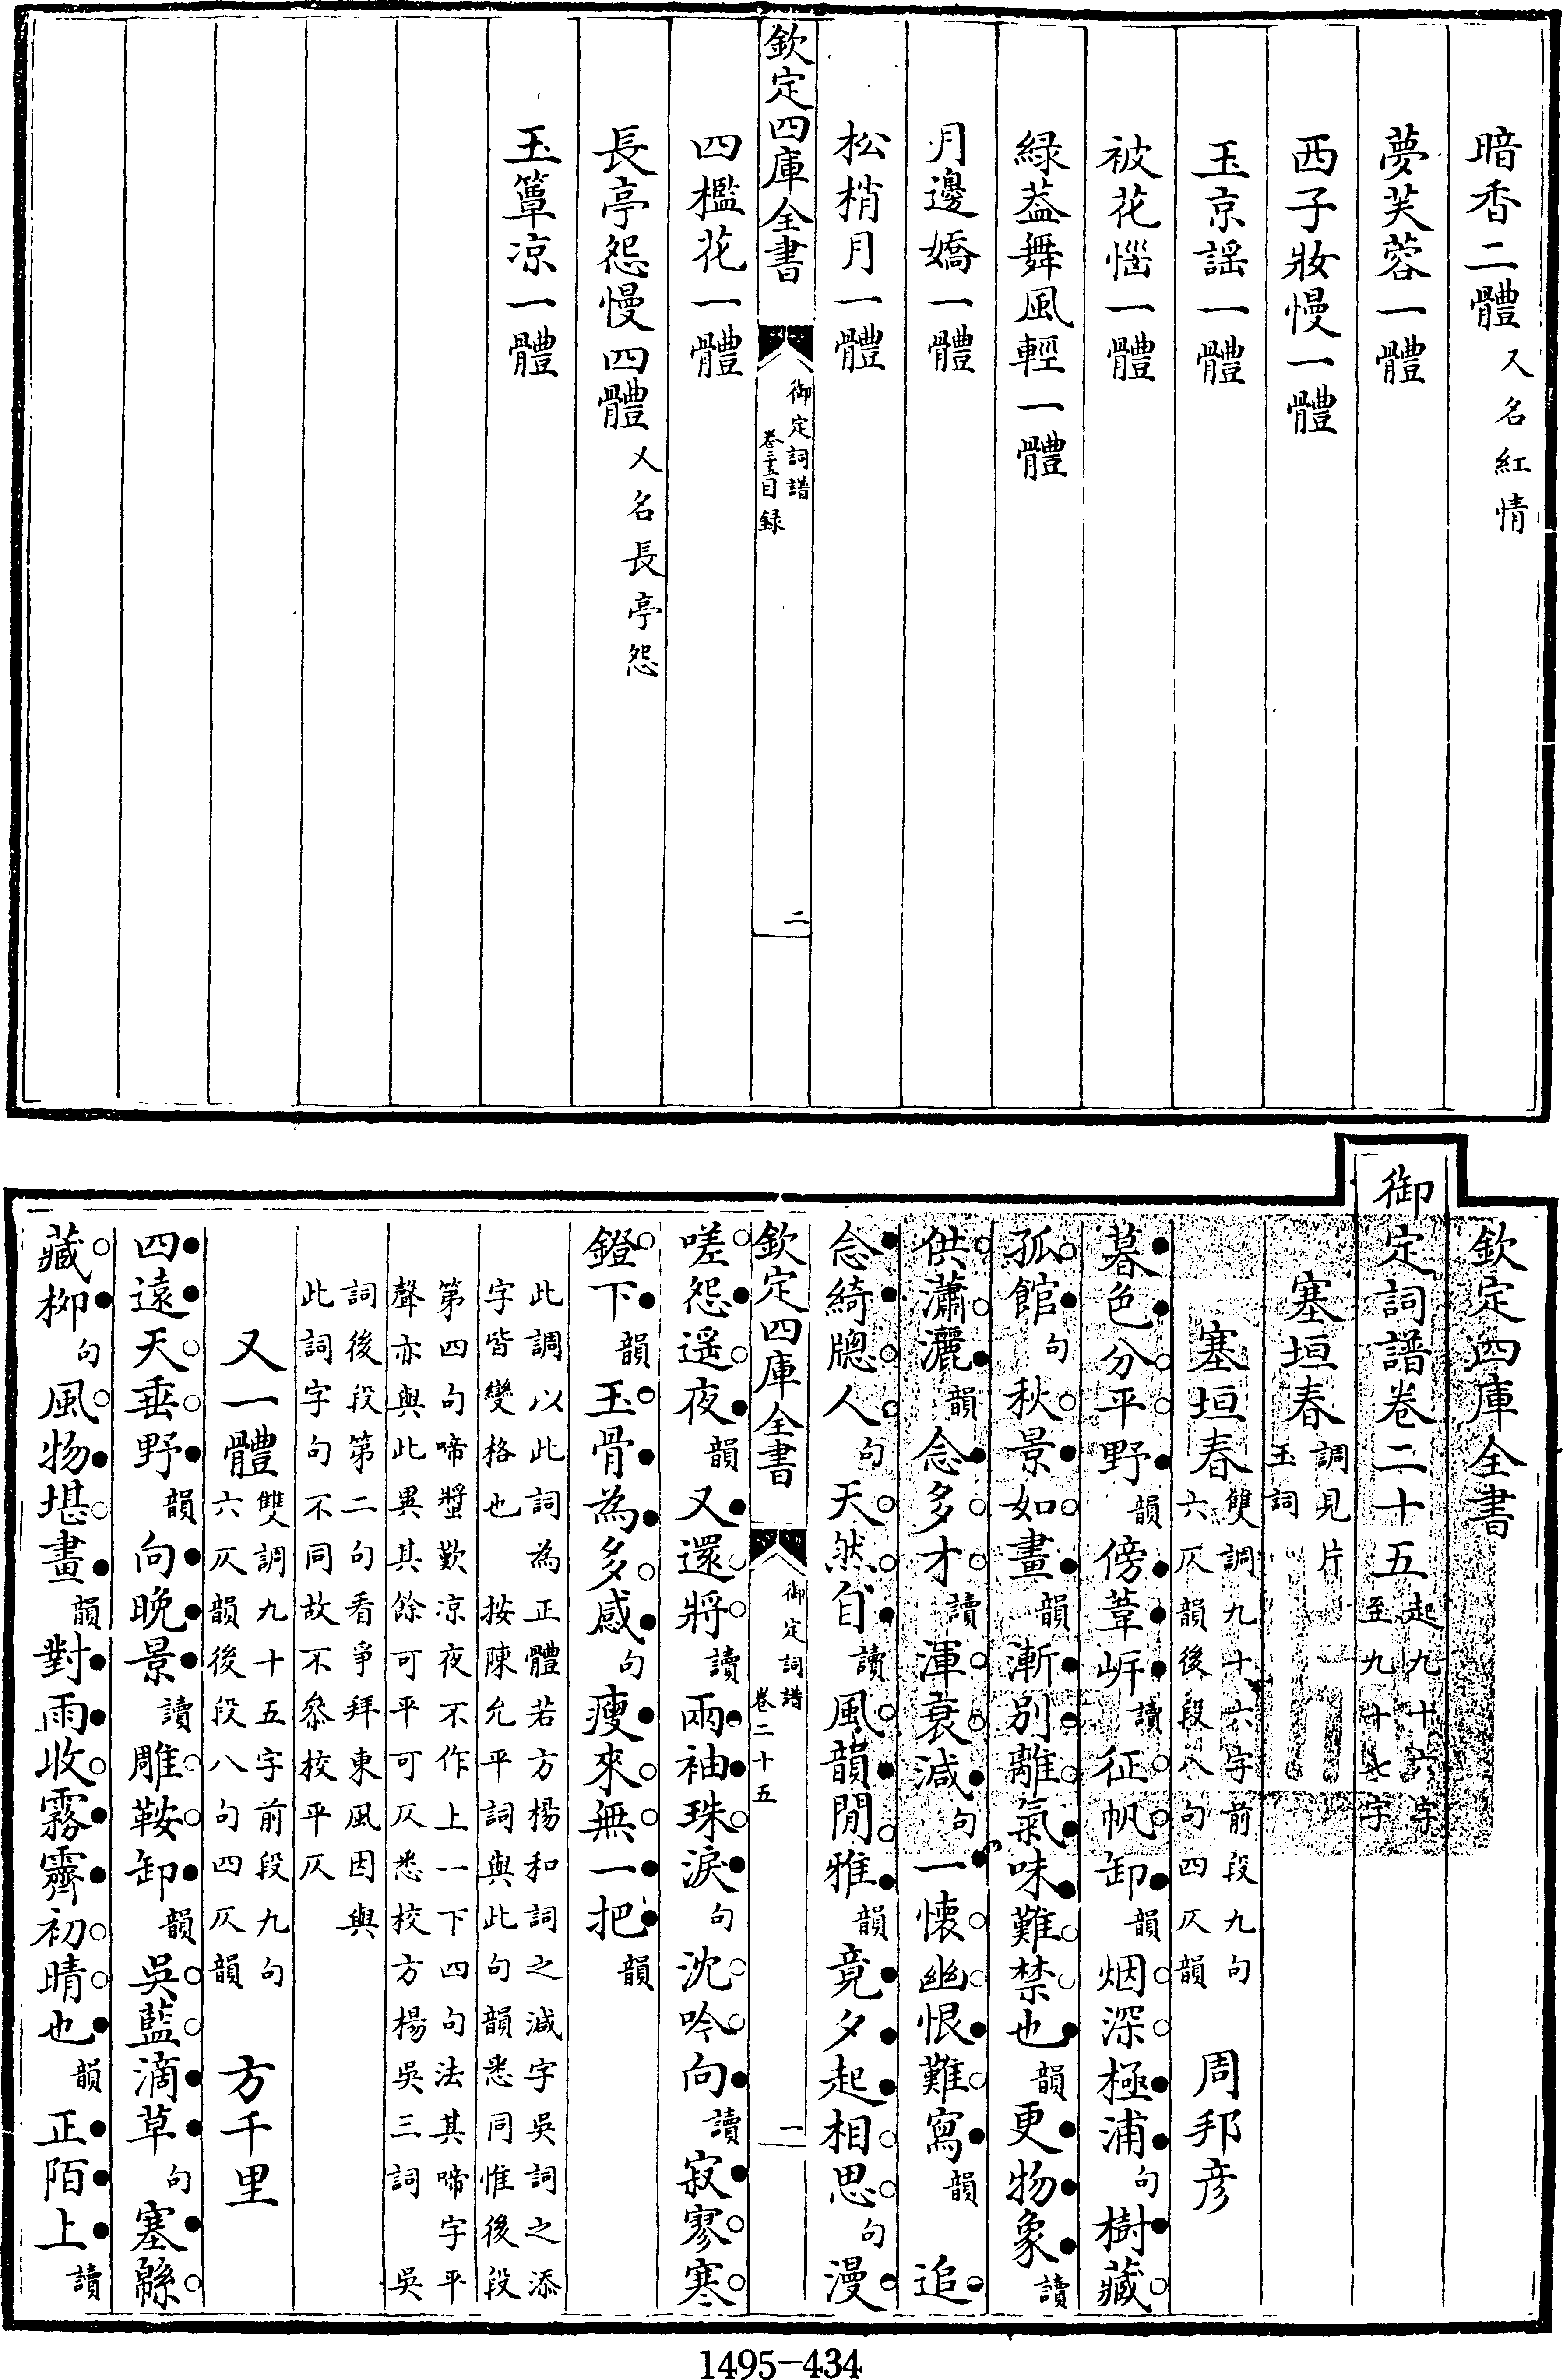 暗香二體又名紅情
夢芙蓉一體
西子妝慢一體
玉京謠一體
被花惱一體
綠葢舞風輕一體
月邊嬌一體
松梢月一體
欽定四庫全書
御定詞譜
卷二十五目録
二
四檻花一體
長亭怨慢四體又名長亭怨
玉簟凉一體
欽定四庫全書
御定詞譜卷二十五起九十六字至九十七字
塞垣春調見片玉詞
塞垣春雙調九十六字前段九句六仄韻後段八句四仄韻 周邦彦
暮色分平野韻傍葦岍讀征帆卸韻烟深極浦句樹藏
孤館句秋景如畫韻漸别離氣味難禁也韻更物象讀
供瀟灑韻念多才讀渾衰減句一懷幽恨難寫韻 追
念綺牕人句天然自讀風韻閒雅韻竟夕起相思句漫
欽定四庫全書
御定詞譜
卷二十五
一
嗟怨遥夜韻又還將讀兩袖珠淚句沈吟向讀寂寥寒
鐙下韻玉骨為多感句瘦來無一把韻
此調以此詞為正體若方楊和詞之減字吳詞之添
字皆變格也 按陳允平詞與此句韻悉同惟後段
第四句啼螿歎凉夜不作上一下四句法其啼字平
聲亦與此異其餘可平可仄悉校方楊吳三詞 吳
詞後段第二句看爭拜東風因與
此詞字句不同故不叅校平仄
又一體雙調九十五字前段九句六仄韻後段八句四仄韻 方千里
四遠天垂野韻向晚景讀雕鞍卸韻吳藍滴草句塞緜
藏柳句風物堪畫韻對雨收霧霽初晴也韻正陌上讀
1495-434